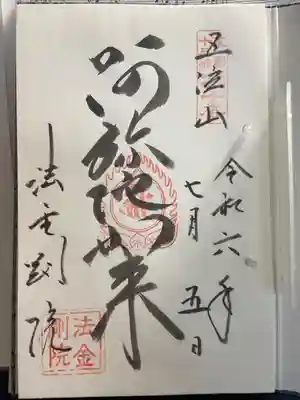 五位山
令和六年
七月五日
阿弥陀如来
法金剛院
法金
剛院